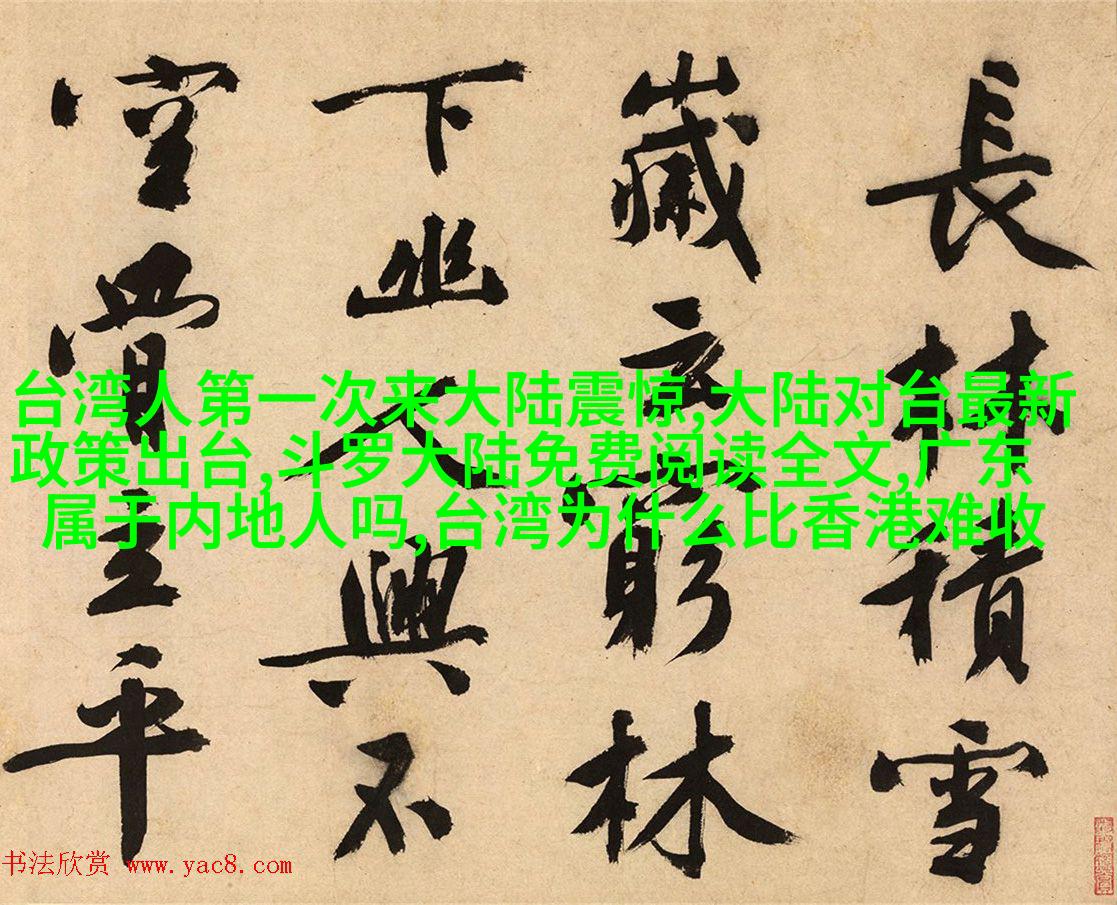 長林積雪
嵗云窮林
下幽人興不
空平
台湾人第一次来大陆震惊,大陆对台最新
政策出台,斗罗大陆免费阅读全文,广东
属于内地人吗,台湾为什么比香港难收
书法欣赏 www.yac8.com